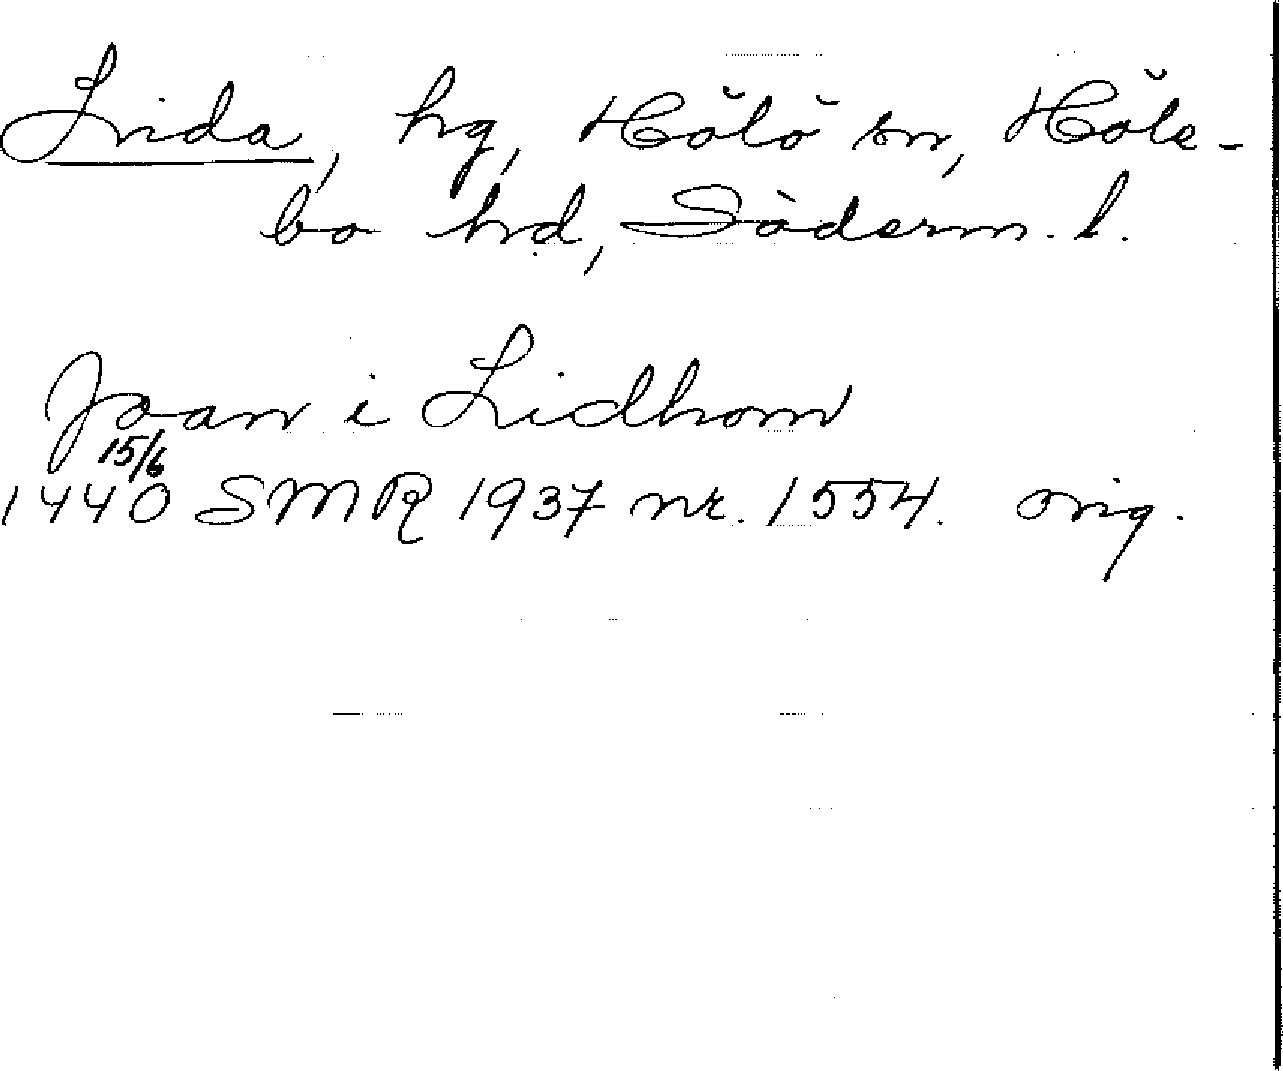 Lida, hg, Hölö sn, Höle-
bo hd, Söderm. l.
Joan i Lidhom
15/6
1440 SMR 1937 nr. 1554. orig.